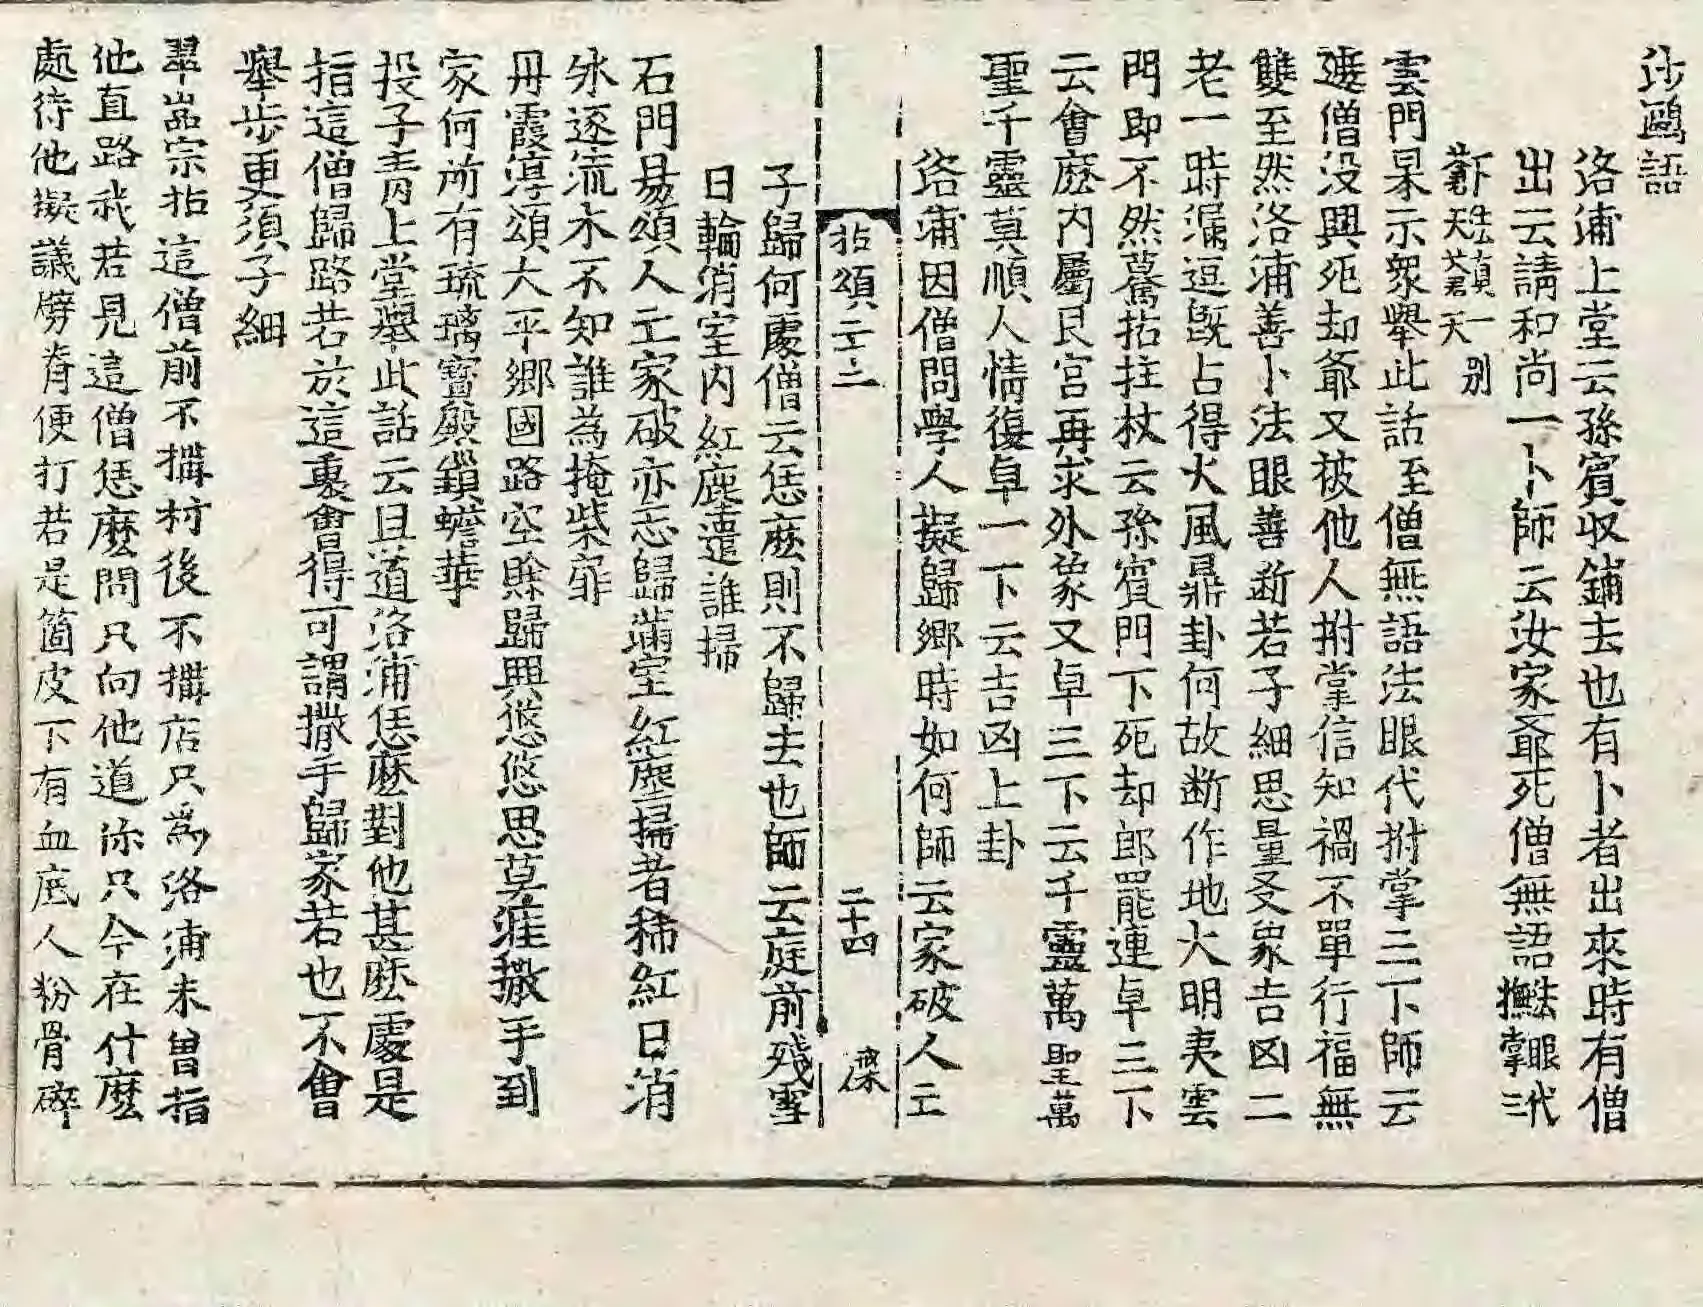 沙鷗語
洛浦上堂云孫賓収鋪去也有卜者出來時有僧
出云請和尚一卜師云汝家爺死僧無語法眼代撫掌三
下法真一別
雲門杲示衆舉此話至僧無語法眼代拊掌三下師云
這僧没興死却爺又被他人拊掌信知禍不單行福無
雙至然洛浦善卜法眼善断若子細思量爻象吉凶二
老一時漏逗旣占得火風鼎卦何故断作地火明夷雲
門即不然驀拈拄杖云孫賓門下死却郎罷連卓三下
云會麽内屬艮宫再求外象又卓三下云千靈萬聖萬
聖千靈莫順人情復卓一下云吉凶上卦
洛浦因僧問學人擬歸郷時如何師云家破人亡
拈頌二十二 二十四
子歸何處僧云恁麽則不歸去也師云庭前殘雪
日輪消室内紅塵遣誰掃
石門易頌人亡家破亦忘歸滿室紅塵掃者稀紅日消
氷逐流水不知誰為掩柴扉
丹霞淳頌大平郷國路空賖歸興悠悠思莫涯撒手到
家何所有琉璃寳殿鎖蟾華
投子青上堂舉此話云且道洛浦恁麽對他甚麽處是
指這僧歸路若於這裏會得可謂撒手歸家若也不會
舉步更須子細
翠嵓宗拈這僧前不搆村後不搆店只為洛浦未曽指
他直路我若見這僧恁麽問只向他道你只今在什麽
處待他擬議劈脊便打若是箇皮下有血底人粉骨碎